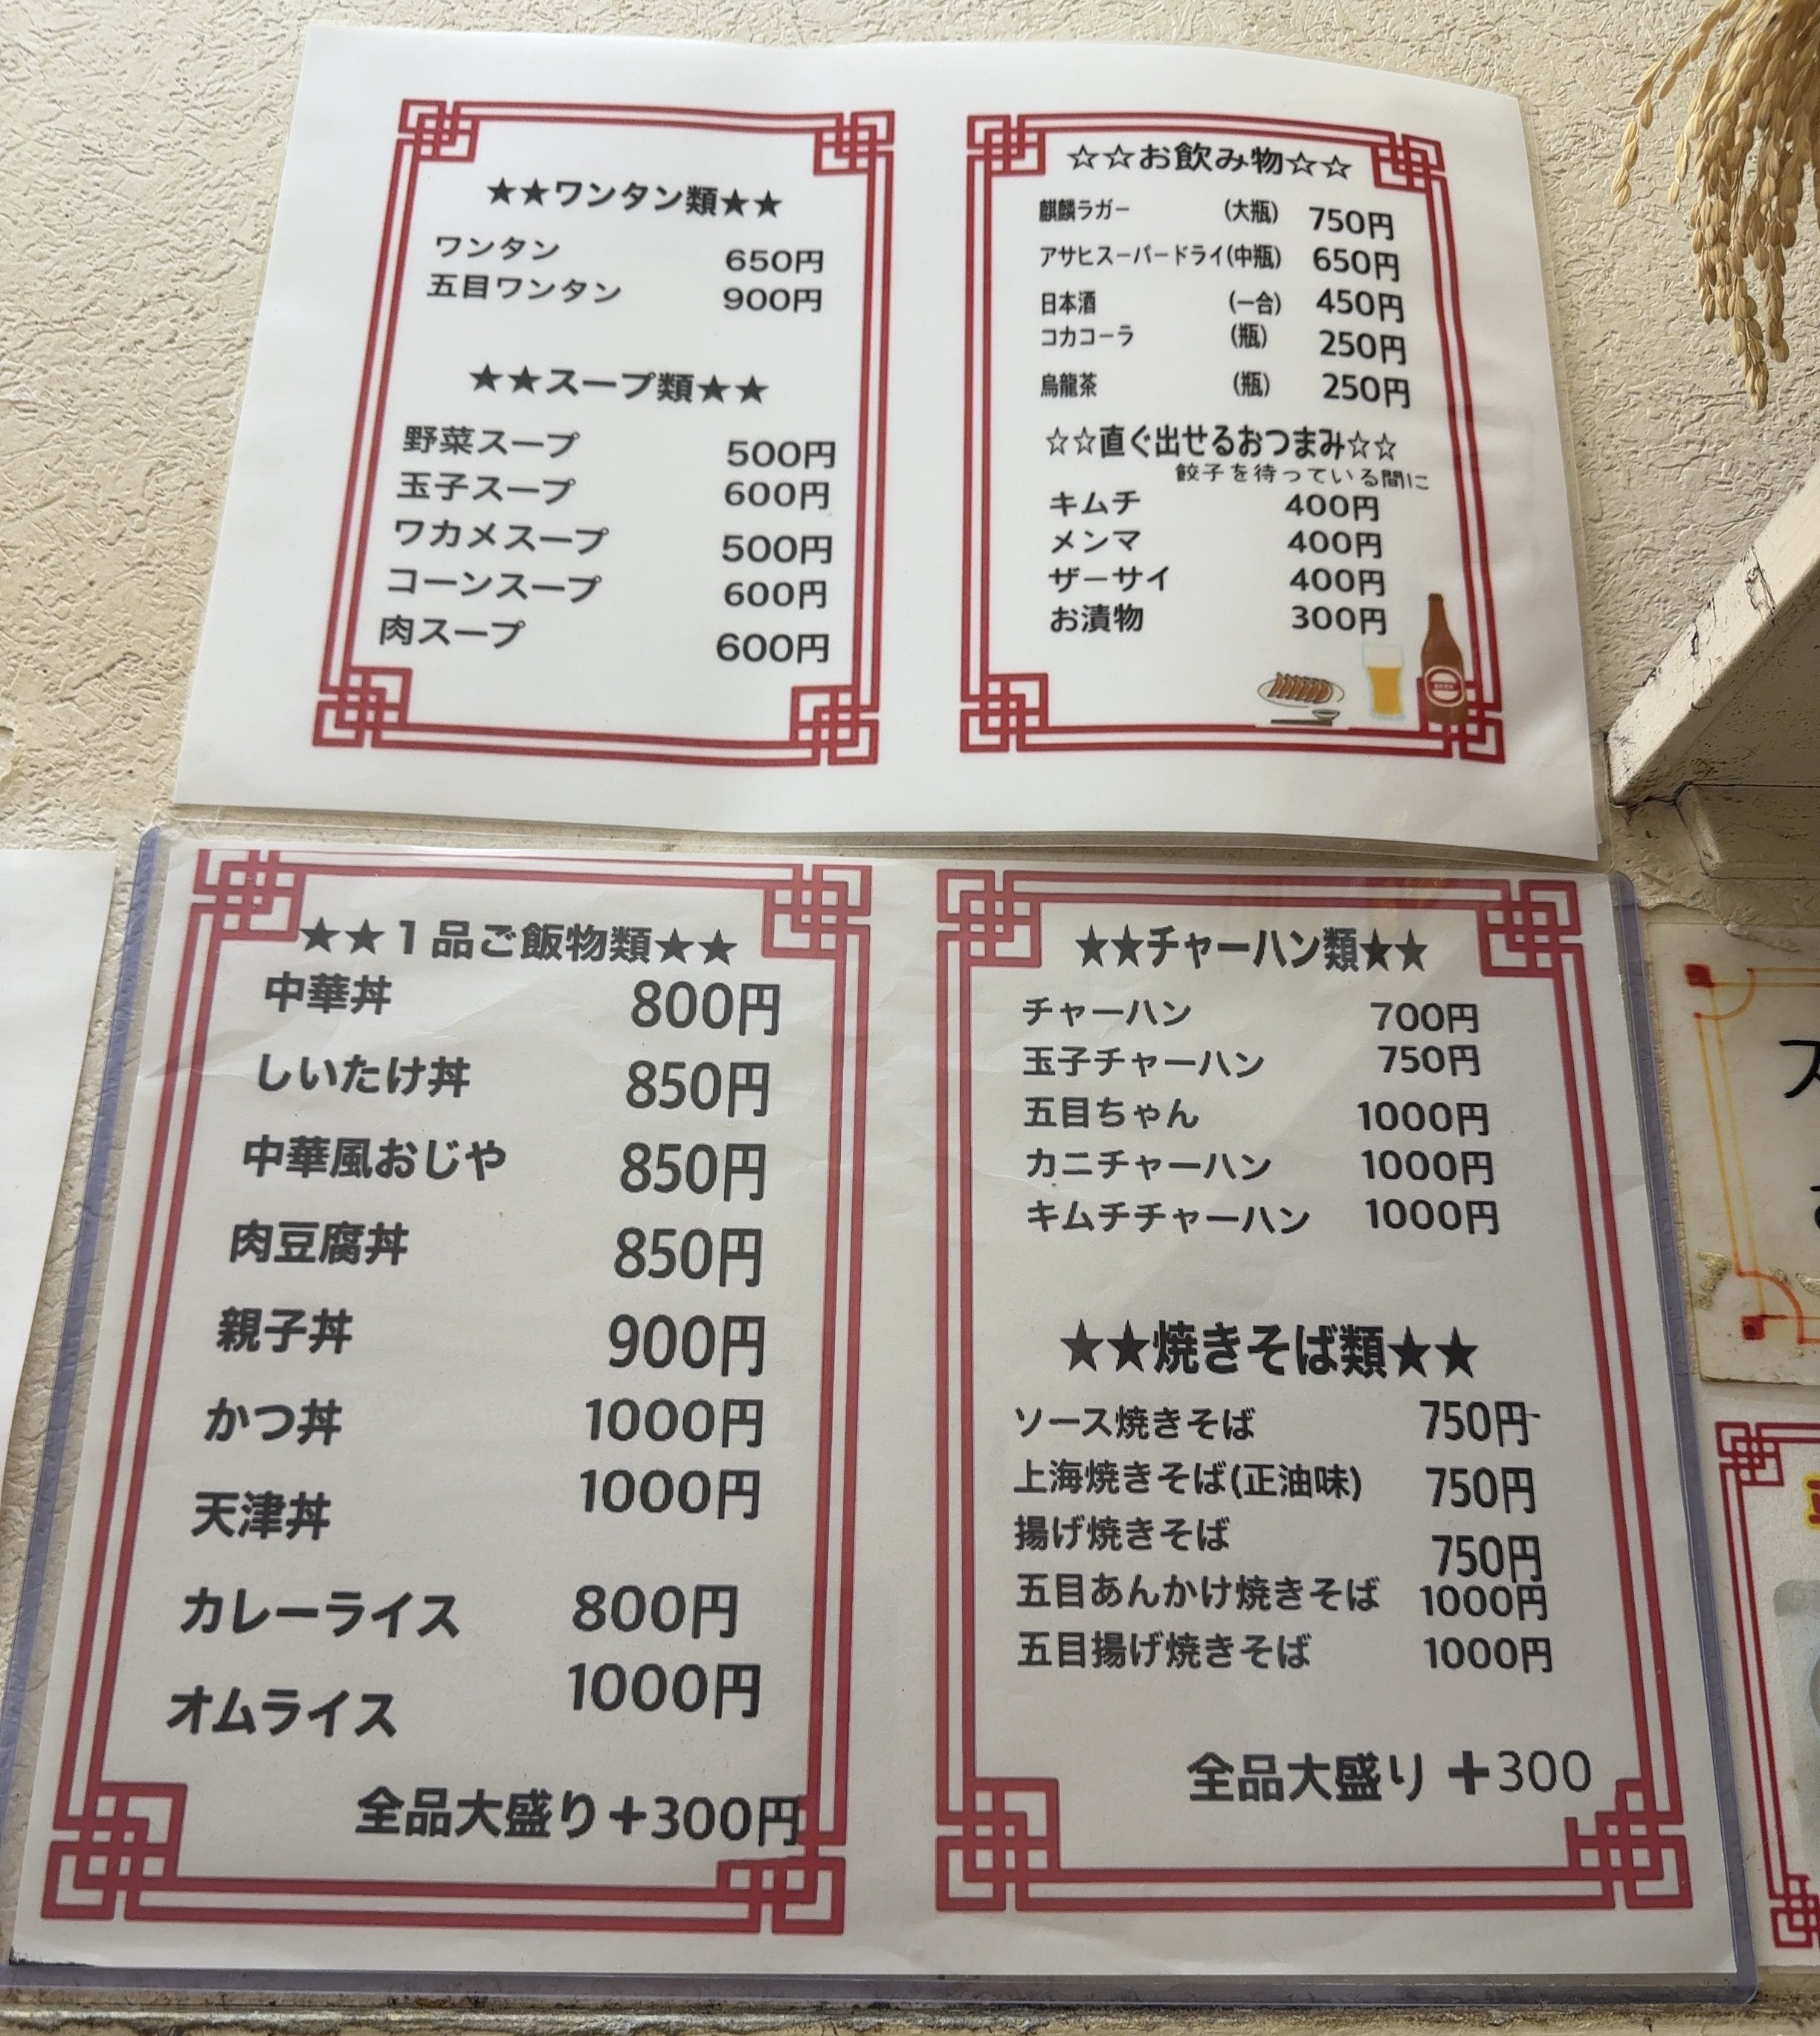 ★★ワンタン類★★
ワンタン 650円
五目ワンタン 900円
★★スープ類★★
野菜スープ 500円
玉子スープ 600円
ワカメスープ 500円
コーンスープ 600円
肉スープ 600円
☆☆お飲み物☆☆
麒麟ラガー (大瓶) 750円
アサヒスーパードライ(中瓶) 650円
日本酒 (一合) 450円
コカコーラ (瓶) 250円
烏龍茶 (瓶) 250円
☆☆直ぐ出せるおつまみ☆☆
餃子を待っている間に
キムチ 400円
メンマ 400円
ザーサイ 400円
お漬物 300円
★★1品ご飯物類★★
中華丼 800円
しいたけ丼 850円
中華風おじや 850円
肉豆腐丼 850円
親子丼 900円
かつ丼 1000円
天津丼 1000円
カレーライス 800円
オムライス 1000円
全品大盛り+300円
★★チャーハン類★★
チャーハン 700円
玉子チャーハン 750円
五目ちゃん 1000円
カニチャーハン 1000円
キムチチャーハン 1000円
★★焼きそば類★★
ソース焼きそば 750円
上海焼きそば(正油味) 750円
揚げ焼きそば 750円
五目あんかけ焼きそば 1000円
五目揚げ焼きそば 1000円
全品大盛り +300